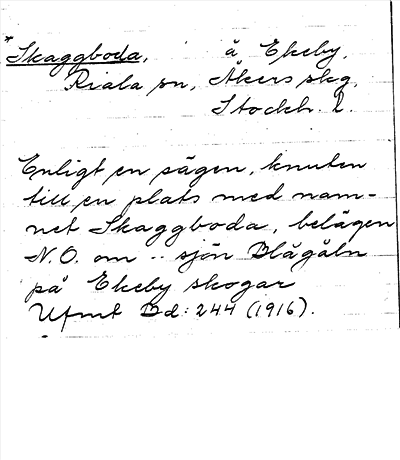 *Skaggboda, å Ekeby,
Riala sn, Åkers skg,
Stockh. l.
Enligt en sägen, knuten
till en plats med nam-
net Skaggboda, belägen
N.O. om sjön Blågåln
på Ekeby skogar
Ufmt Bd: 244 (1916).